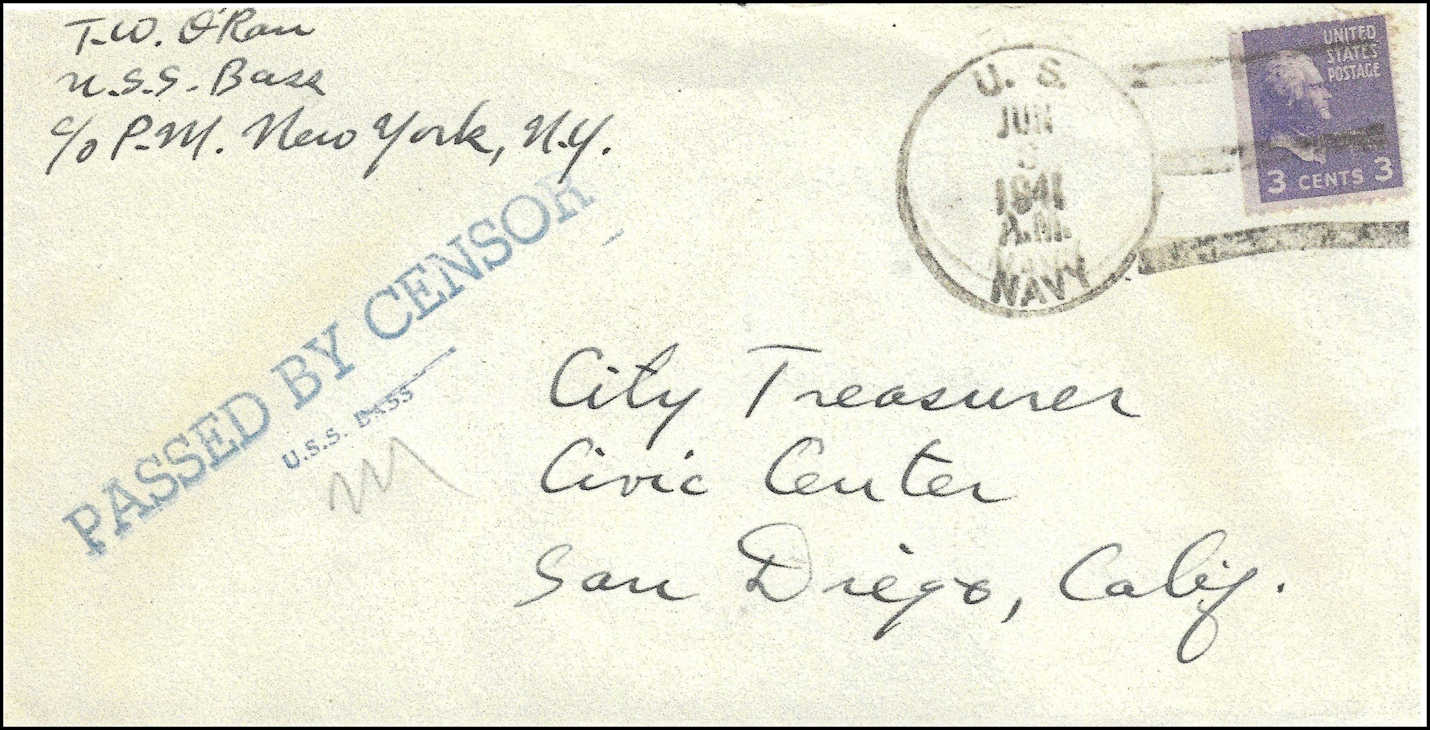 T.W. O'Ran
U.S.S. Bass
c/o P.M. New York, N.Y.
U. S.
JUN
3
1941
A.M.
NAVY
UNITED
STATES
POSTAGE
3 CENTS 3
PASSED BY CENSOR
U.S.S. BASS
City Treasurer
Civic Center
San Diego, Calif.